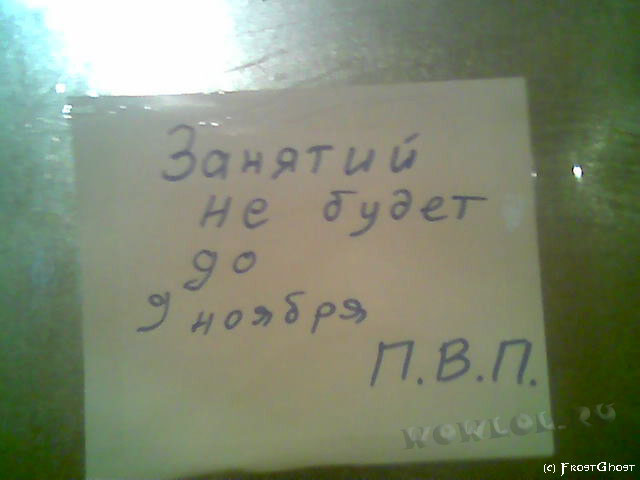 Занятий
не будет
до
9 ноября
П.В.П.
WOWLOL.RU
(c) FrostGhost